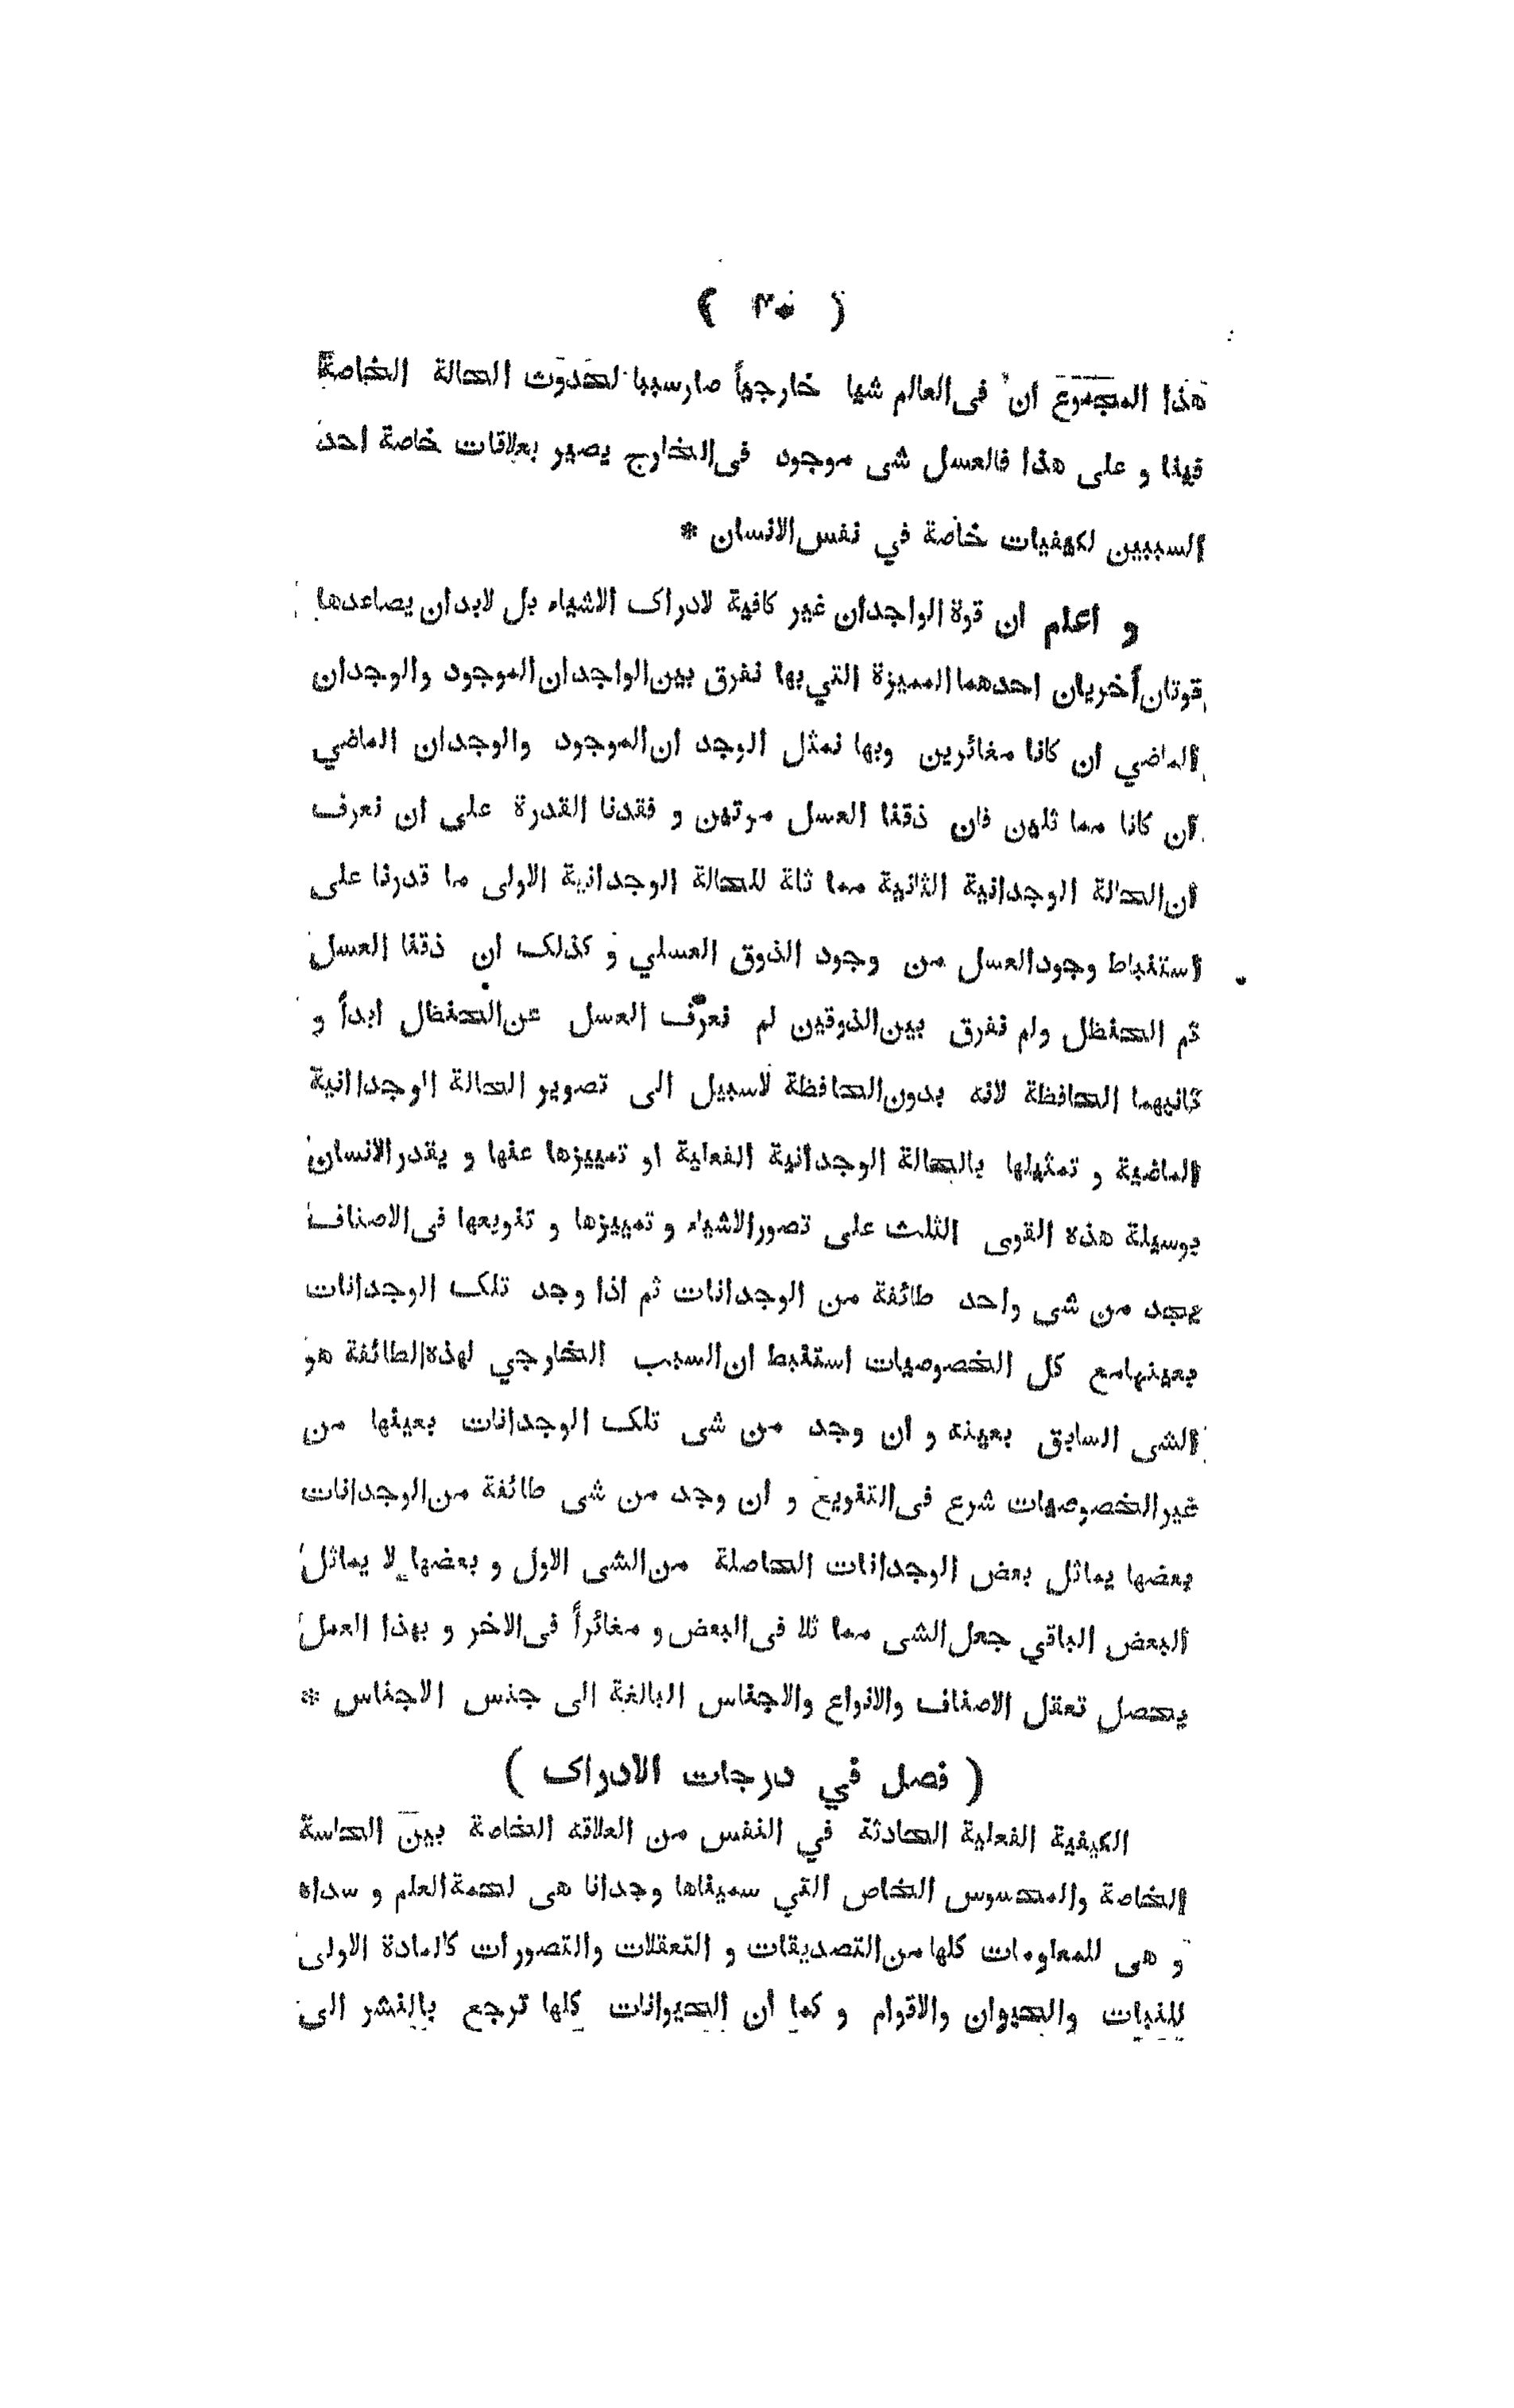 ( ٣٠ )
هذا المجموع ان فى العالم شيا خارجياً صار سببا لحدوث الحالة الخاصة
فينا و على هذا فالعسل شى موجود فى الخارج يصير بعلاقات خاصة احد
السببين لكيفيات خاصة في نفس الانسان *
و اعلم ان قوة الواجدان غير كافية لادراک الاشياء بل لابدان يصاعدها
قوتان أخريان احدهما المميزة التي بها نفرق بين الواجدان الموجود والوجدان
الماضي ان كانا مغائرين وبها نمثل الوجد ان الموجود والوجدان الماضي
ان كانا مما ثلين فان ذقنا العسل مرتين و فقدنا القدرة على ان نعرف
ان الحالة الوجدانية الثانية مما ثلة للحالة الوجدانية الاولى ما قدرنا على
استنباط وجود العسل من وجود الذوق العسلي و كذلک ان ذقنا العسل
ثم الحنظل ولم نفرق بين الذوقين لم نعرف العسل عن الحنظال ابداً و
ثانيهما الحافظة لانه بدون الحافظة لاسبيل الى تصوير الحالة الوجداانية
الماضية و تمثيلها بالحالة الوجدانية الفعلية او تمييزها عنها و يقدر الانسان
بوسيلة هذه القوى الثلث على تصور الاشياء و تمييزها و تنويعها فى الاصناف
عجد من شى واحد طائفة من الوجدانات ثم اذا وجد تلک الوجدانات
بعينها مع كل الخصوصيات استنبط ان السبب الخارجي لهذه الطائفة هو
الشى السابق بعينه و ان وجد من شى تلک الوجدانات بعينها من
غير الخصوصيات شرع فى التنويع و ان وجد من شى طائفة من الوجدانات
بعضها يماثل بعض الوجدانات الحاصلة من الشى الاول و بعضها لا يماثل
البعض الباقي جعل الشى مما ثلا فى البعض و مغائراً فى الاخر و بهذا العمل
يحصل تعقل الاصناف والانواع والاجناس البالغة الى جنس الاجناس *
( فصل في درجات الادراک )
الكيفية الفعلية الحادثة في النفس من العلاقه الخاصة بين الحاسة
الخاصة والمحسوس الخاص التي سميناها وجدانا هى لحمة العلم و سداه
و هى للمعلومات كلها من التصديقات و التعقلات والتصورات كالمادة الاولى
للنبات والحيوان والاقوام و كما أن الحيوانات كلها ترجع بالنشر الى